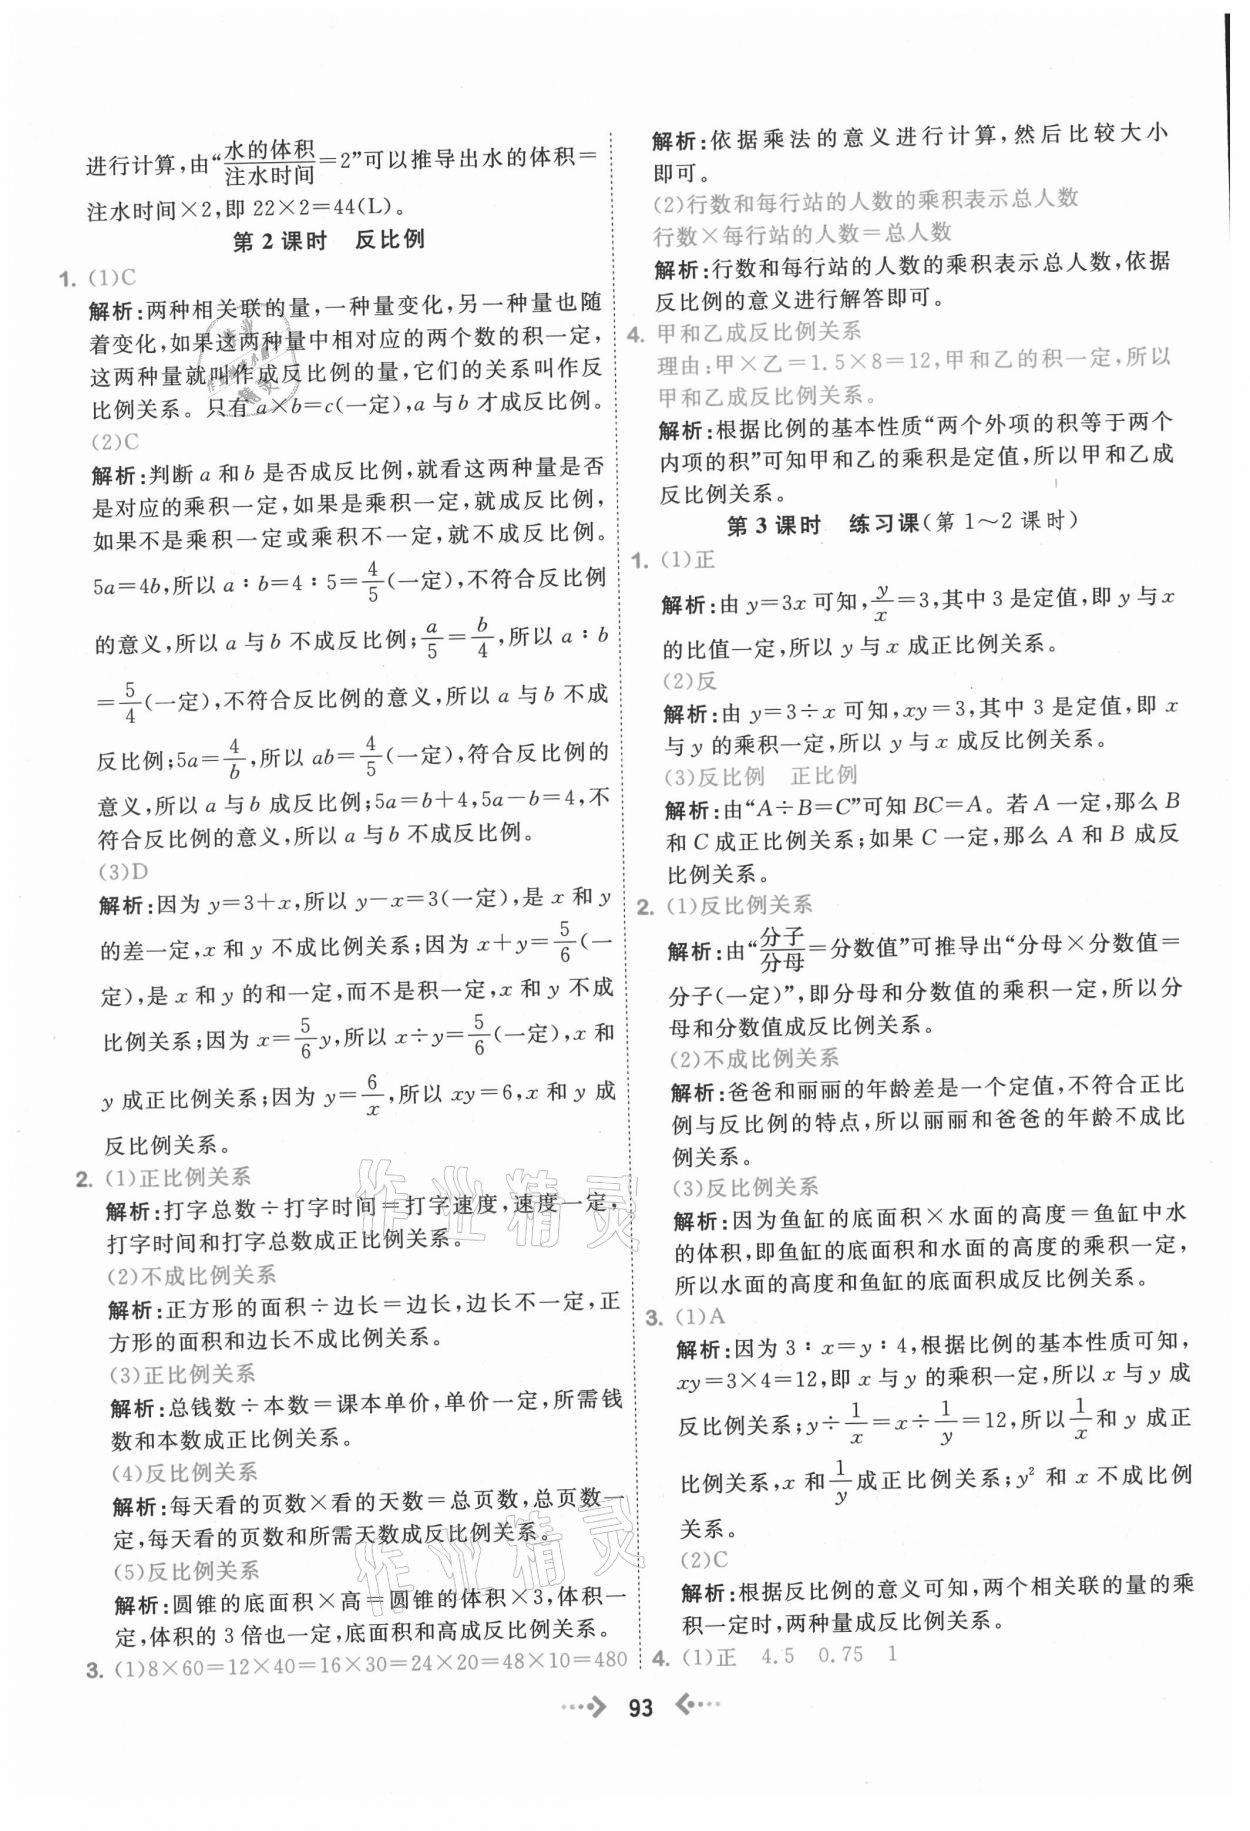 进行计算,由“水的体积/注水时间=2”可以推导出水的体积=
注水时间×2,即 22×2=44(L)。
第 2 课时　反比例
1. (1)C
解析:两种相关联的量,一种量变化,另一种量也随
着变化,如果这两种量中相对应的两个数的积一定,
这两种量就叫作成反比例的量,它们的关系叫作反
比例关系。只有 a×b=c(一定),a 与 b 才成反比例。
(2)C
解析:判断 a 和 b 是否成反比例,就看这两种量是否
是对应的乘积一定,如果是乘积一定,就成反比例,
如果不是乘积一定或乘积不一定,就不成反比例。
5a=4b,所以 a∶b=4∶5=4/5(一定),不符合反比例
的意义,所以 a 与 b 不成反比例;a/5=b/4,所以 a∶b
=5/4(一定),不符合反比例的意义,所以 a 与 b 不成
反比例;5a=4/b,所以 ab=4/5(一定),符合反比例的
意义,所以 a 与 b 成反比例;5a=b+4,5a-b=4,不
符合反比例的意义,所以 a 与 b 不成反比例。
(3)D
解析:因为 y=3+x,所以 y-x=3(一定),是 x 和 y
的差一定,x 和 y 不成比例关系;因为 x+y=5/6(一
定),是 x 和 y 的和一定,而不是积一定,x 和 y 不成
比例关系;因为 x=5/6y,所以 x÷y=5/6(一定),x 和
y 成正比例关系;因为 y=6/x,所以 xy=6,x 和 y 成
反比例关系。
2. (1)正比例关系
解析:打字总数÷打字时间=打字速度,速度一定,
打字时间和打字总数成正比例关系。
(2)不成比例关系
解析:正方形的面积÷边长=边长,边长不一定,正
方形的面积和边长不成比例关系。
(3)正比例关系
解析:总钱数÷本数=课本单价,单价一定,所需钱
数和本数成正比例关系。
(4)反比例关系
解析:每天看的页数×看的天数=总页数,总页数一
定,每天看的页数和所需天数成反比例关系。
(5)反比例关系
解析:圆锥的底面积×高=圆锥的体积×3,体积一
定,体积的 3 倍也一定,底面积和高成反比例关系。
3. (1)8×60=12×40=16×30=24×20=48×10=480
解析:依据乘法的意义进行计算,然后比较大小
即可。
(2)行数和每行站的人数的乘积表示总人数
行数×每行站的人数=总人数
解析:行数和每行站的人数的乘积表示总人数,依据
反比例的意义进行解答即可。
4. 甲和乙成反比例关系
理由:甲×乙=1.5×8=12,甲和乙的积一定,所以
甲和乙成反比例关系。
解析:根据比例的基本性质“两个外项的积等于两个
内项的积”可知甲和乙的乘积是定值,所以甲和乙成
反比例关系。
第 3 课时　练习课(第 1～2 课时)
1. (1)正
解析:由 y=3x 可知,y/x=3,其中 3 是定值,即 y 与 x
的比值一定,所以 y 与 x 成正比例关系。
(2)反
解析:由 y=3÷x 可知,xy=3,其中 3 是定值,即 x
与 y 的乘积一定,所以 y 与 x 成反比例关系。
(3)反比例　正比例
解析:由“A÷B=C”可知 BC=A。若 A 一定,那么 B
和 C 成正比例关系;如果 C 一定,那么 A 和 B 成反
比例关系。
2. (1)反比例关系
解析:由“分子/分母=分数值”可推导出“分母×分数值=
分子(一定)”,即分母和分数值的乘积一定,所以分
母和分数值成反比例关系。
(2)不成比例关系
解析:爸爸和丽丽的年龄差是一个定值,不符合正比
例与反比例的特点,所以丽丽和爸爸的年龄不成比
例关系。
(3)反比例关系
解析:因为鱼缸的底面积×水面的高度=鱼缸中水
的体积,即鱼缸的底面积和水面的高度的乘积一定,
所以水面的高度和鱼缸的底面积成反比例关系。
3. (1)A
解析:因为 3∶x=y∶4,根据比例的基本性质可知,
xy=3×4=12,即 x 与 y 的乘积一定,所以 x 与 y 成
反比例关系;y÷1/x=x÷1/y=12,所以1/x和 y 成正
比例关系,x 和1/y成正比例关系;y² 和 x 不成比例
关系。
(2)C
解析:根据反比例的意义可知,两个相关联的量的乘
积一定时,两种量成反比例关系。
4. (1)正　4.5　0.75　1
93
作业精灵
作业精灵